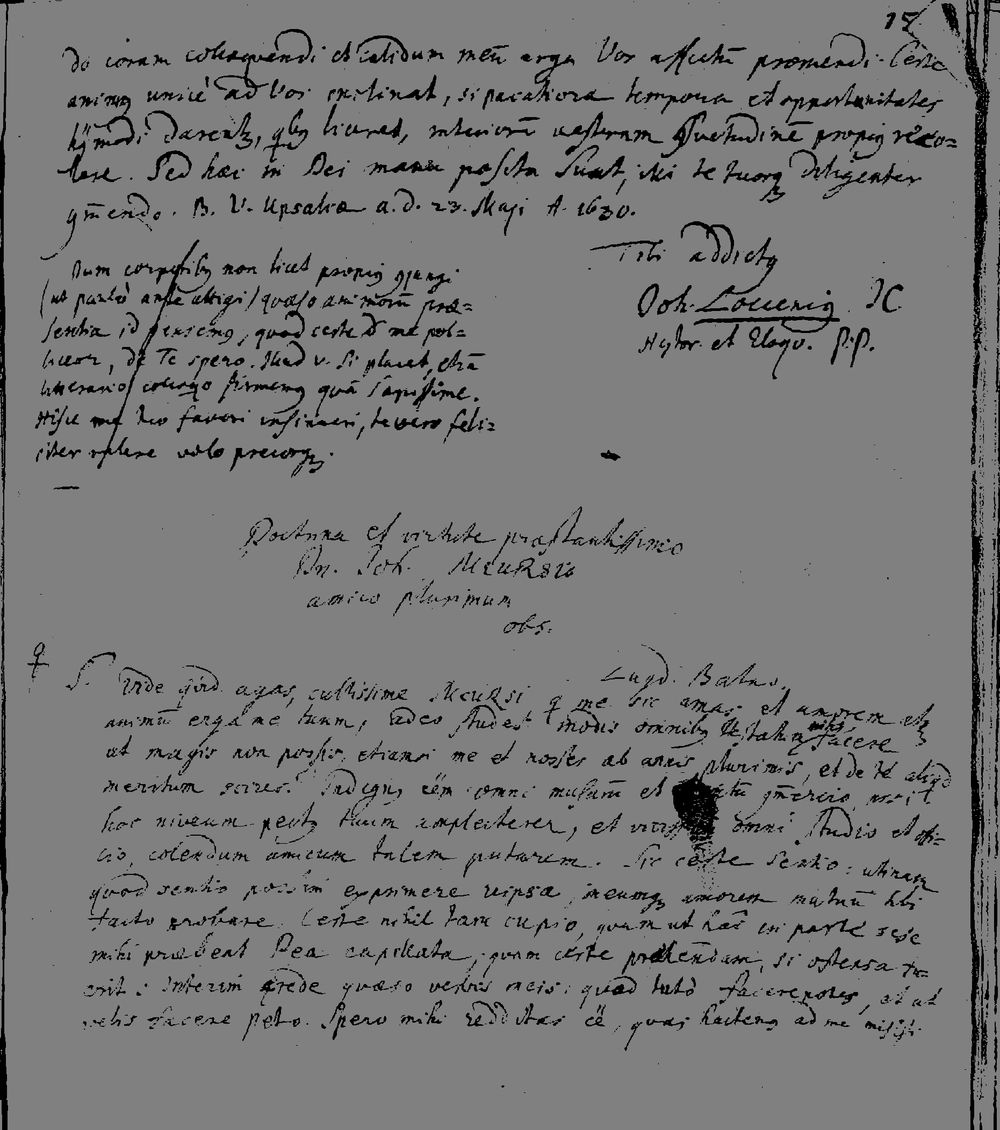 15
do coram colloquendi et calidum meū erga Vos affectū promendi. Certe
animꝯ unicè ad Vos inclinat, si pacatiora tempora et opportunitates
hꝯmodi darentꝛ, qbꝯ liceret, interiorē vestram ꝯsuetudinē propiꝯ reco=
lere. Sed hæc in Dei manu posita sunt, cui te tuosq diligenter
ꝯmendo. B. V. Upsaliæ a. d. 23. Maji A. 1630.
Tibi addictꝯ
Joh. Loccenius JC
Hystor. et Eloqu. P.P.
Dum corporibꝯ non licet propiꝯ ꝯjungi
(ut paulò ante attigi) quæso animorū præ=
sentia id pensemꝯ, quod certe d me pol=
liceor, de Te spero. Illud v. si placet, etiā
literario colloqo firmemꝯ quā sæpissime.
Hisce me tuo favori insinuari, te vero feli=
citer valere volo precorq.
Doctrina et virtute præstantissimo
Dn. Joh. Meursio
amico plurimum
obs.
Lugd. Batav.
S. Vide qd agas, cultissime Meursi q me sic amas et amorem et
animū erga me tuum, adeo studes modis omnibꝯ testatum mihi facere
ut magis non possis, etiamsi me et nosses ab annis plurimis, et de te aliqd
meritum scires. Indignꝯ eēm omni musarū et ꝯmercio, nisi
hoc niveum pectꝯ tuum amplecterer, et omni studio et offi=
cio, colendum amicum talem putarem. Sic certe sentio: utinam
quod sentio possim exprimere reipsa, meumq amorem mutuū tibi
facto probare. Certe nihil tam cupio, quam ut hac in parte sese
mihi præbeat Dea capillata, quam certe prehendam, si ostensa fu=
erit: Interim crede quæso verbis meis: quod tutò facere potes, et ut
velis facere peto. Spero mihi redditas eē, quas hactenꝯ ad me misisti